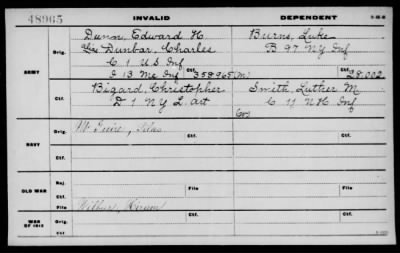 48965
INVALID
DEPENDENT
Orig.
Dunn, Edward H
Burns, Luke
Alias Dunbar, Charles
B 97 NY Inf
C 1 U S Inf
Ctf.
ARMY
I 13 Me Inf 358965 (M)
28,002
Ctf.
Bigard, Christopher
Smith, Luther M
D 1 N Y L. Art
C 11 N H Inf
NAVY
Orig.
Ctf.
Ctf.
Ctf.
OLD WAR
Rej.
Ctf.
File
File
WAR OF 1812
Orig.
Wilbur, Hiram
Ctf.
Ctf.